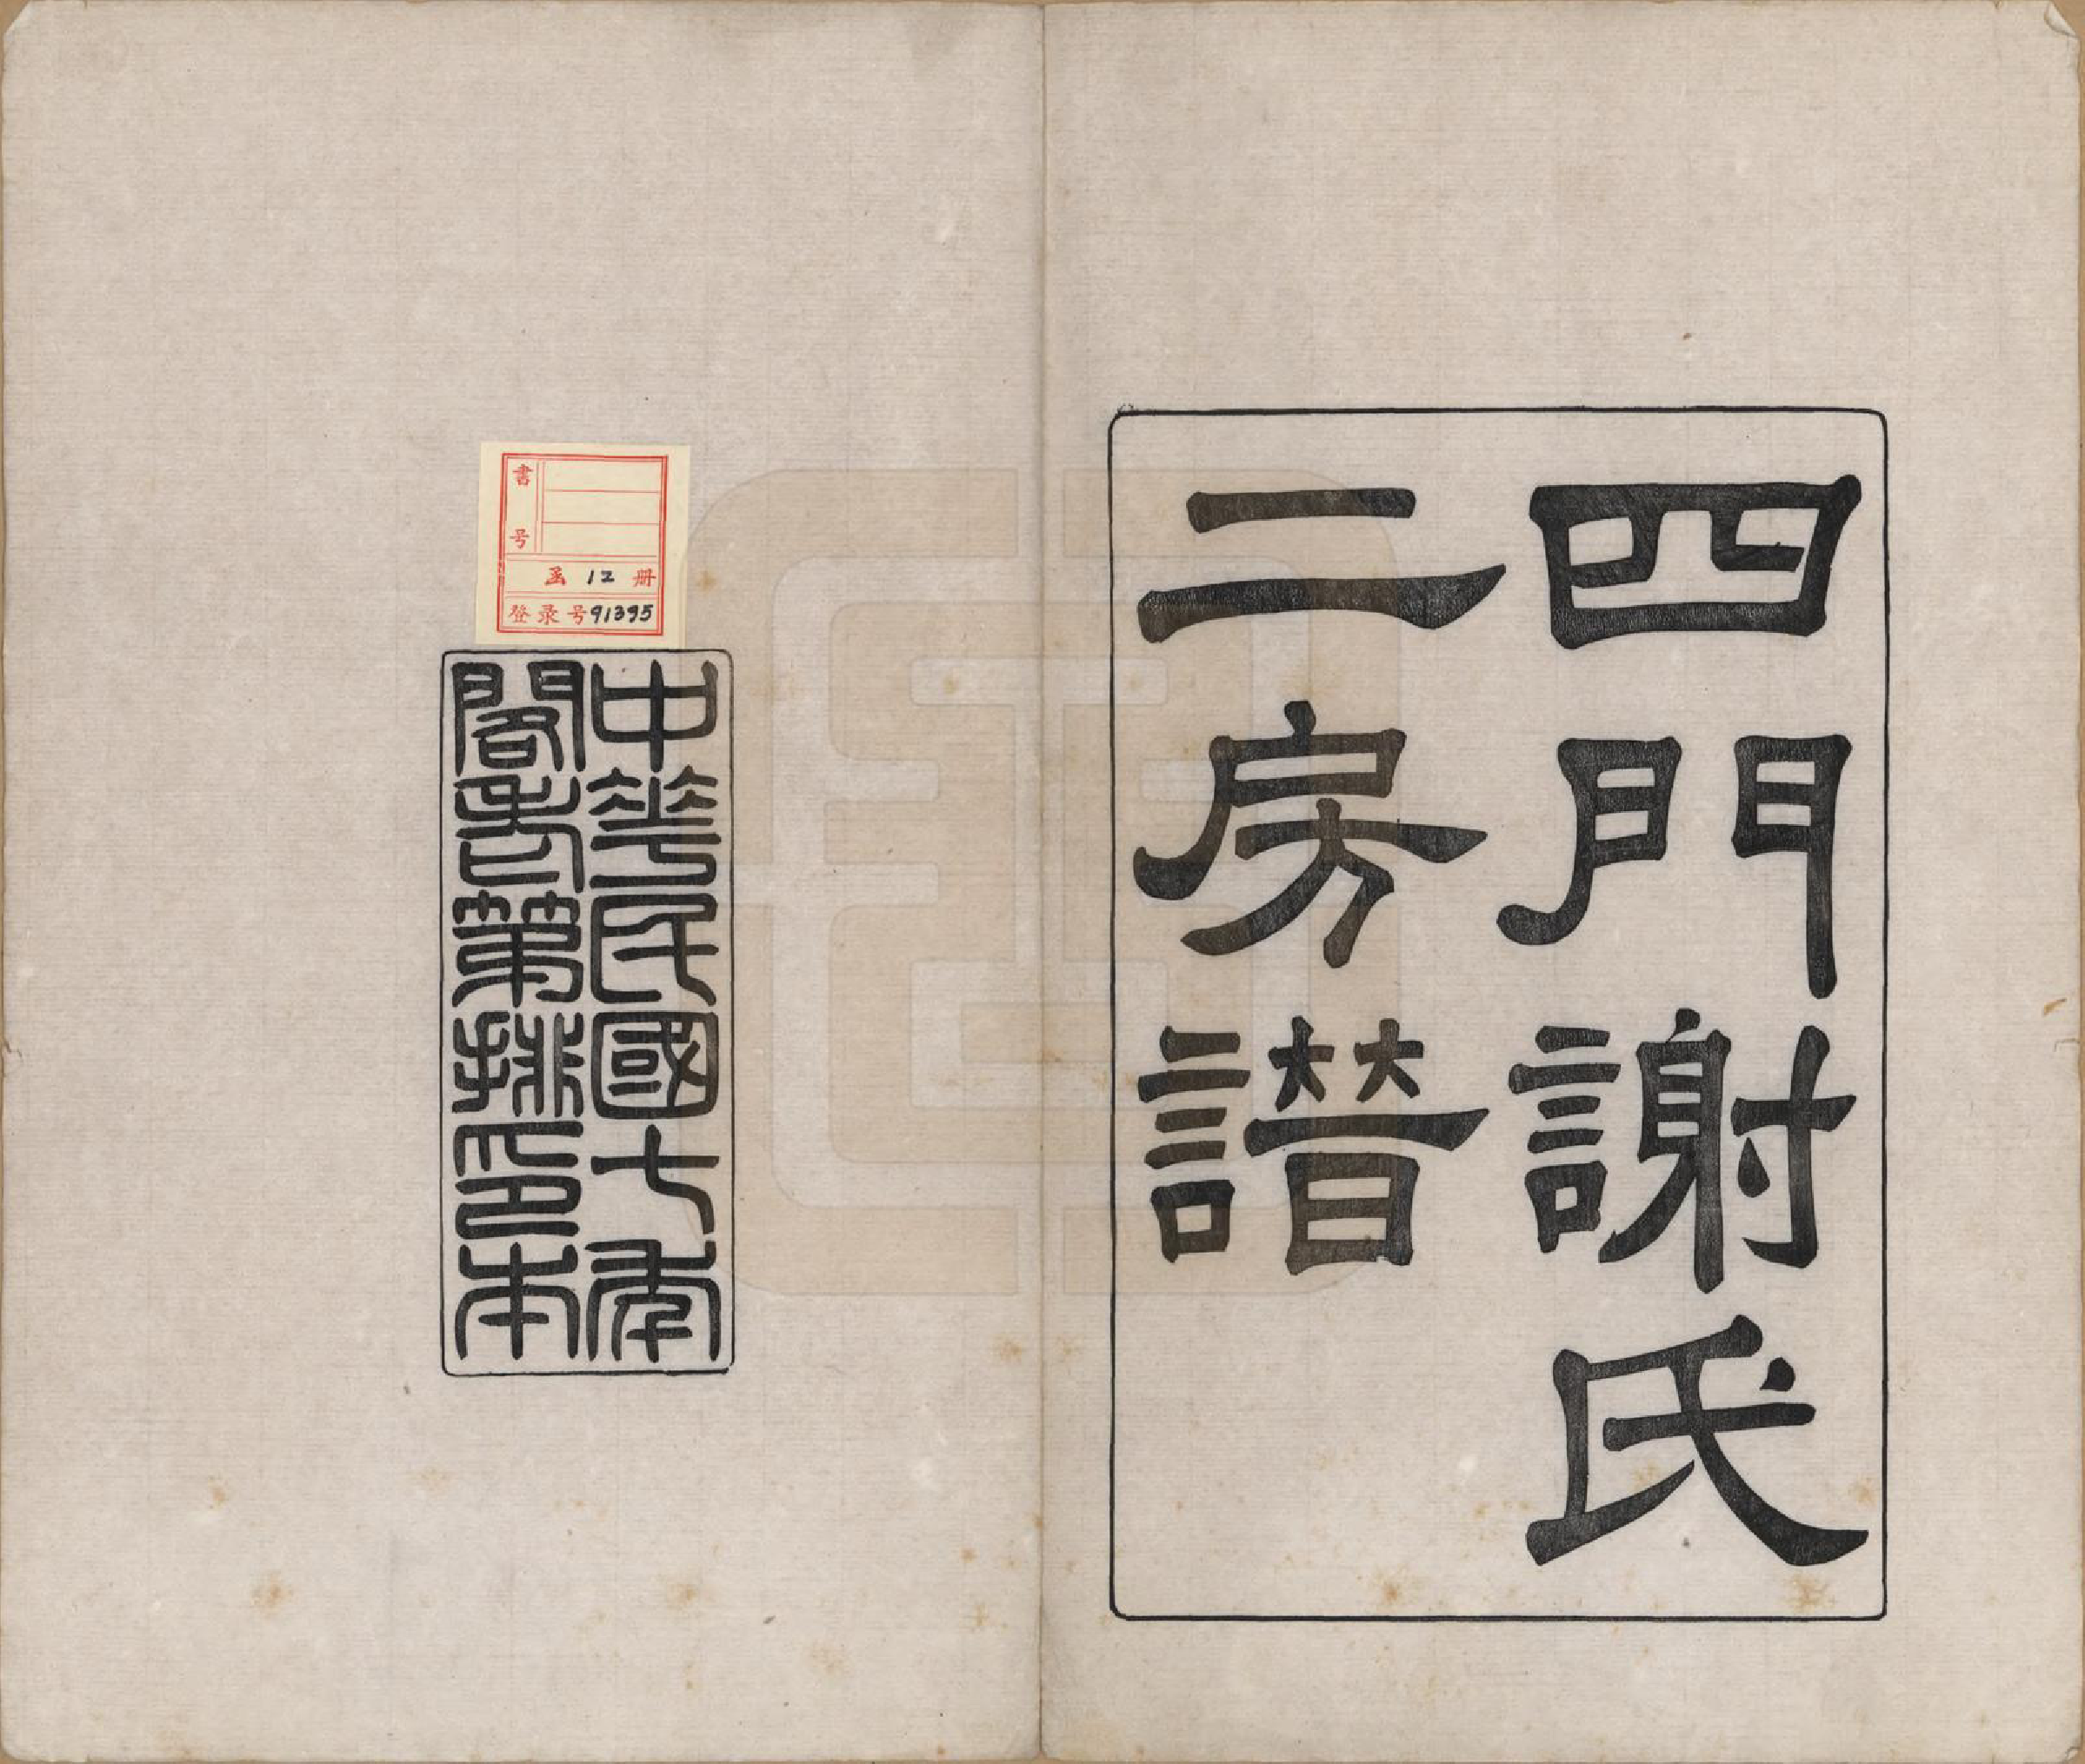 四門謝氏
二房譜
中華民國七年
閣老第排印本
書号
函 12 册
登录号91395